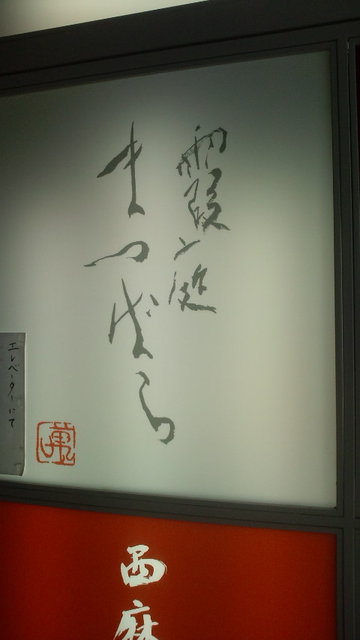 霞ヶ庭
まつばら
エレベーターにて
萬
西麻